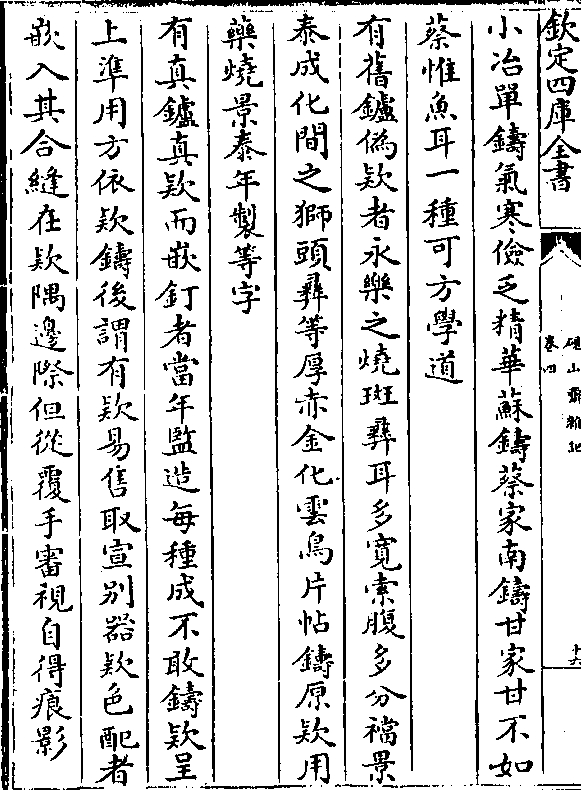 欽定四庫全書
硯山齋雜記
卷四
十六
小冶單鑄氣寒儉乏精華蘇鑄蔡家南鑄甘家甘不如
蔡惟魚耳一種可方學道
有舊鑪偽欵者永樂之燒斑彞耳多寛索腹多分襠景
泰成化間之獅頭彞等厚赤金化雲鳥片帖鑄原欵用
藥燒景泰年製等字
有真鑪真欵而嵌釘者當年監造每種成不敢鑄欵呈
上準用方依欵鑄後謂有欵易售取宣别器欵色配者
嵌入其合縫在欵隅邊際但從覆手審視自得痕影